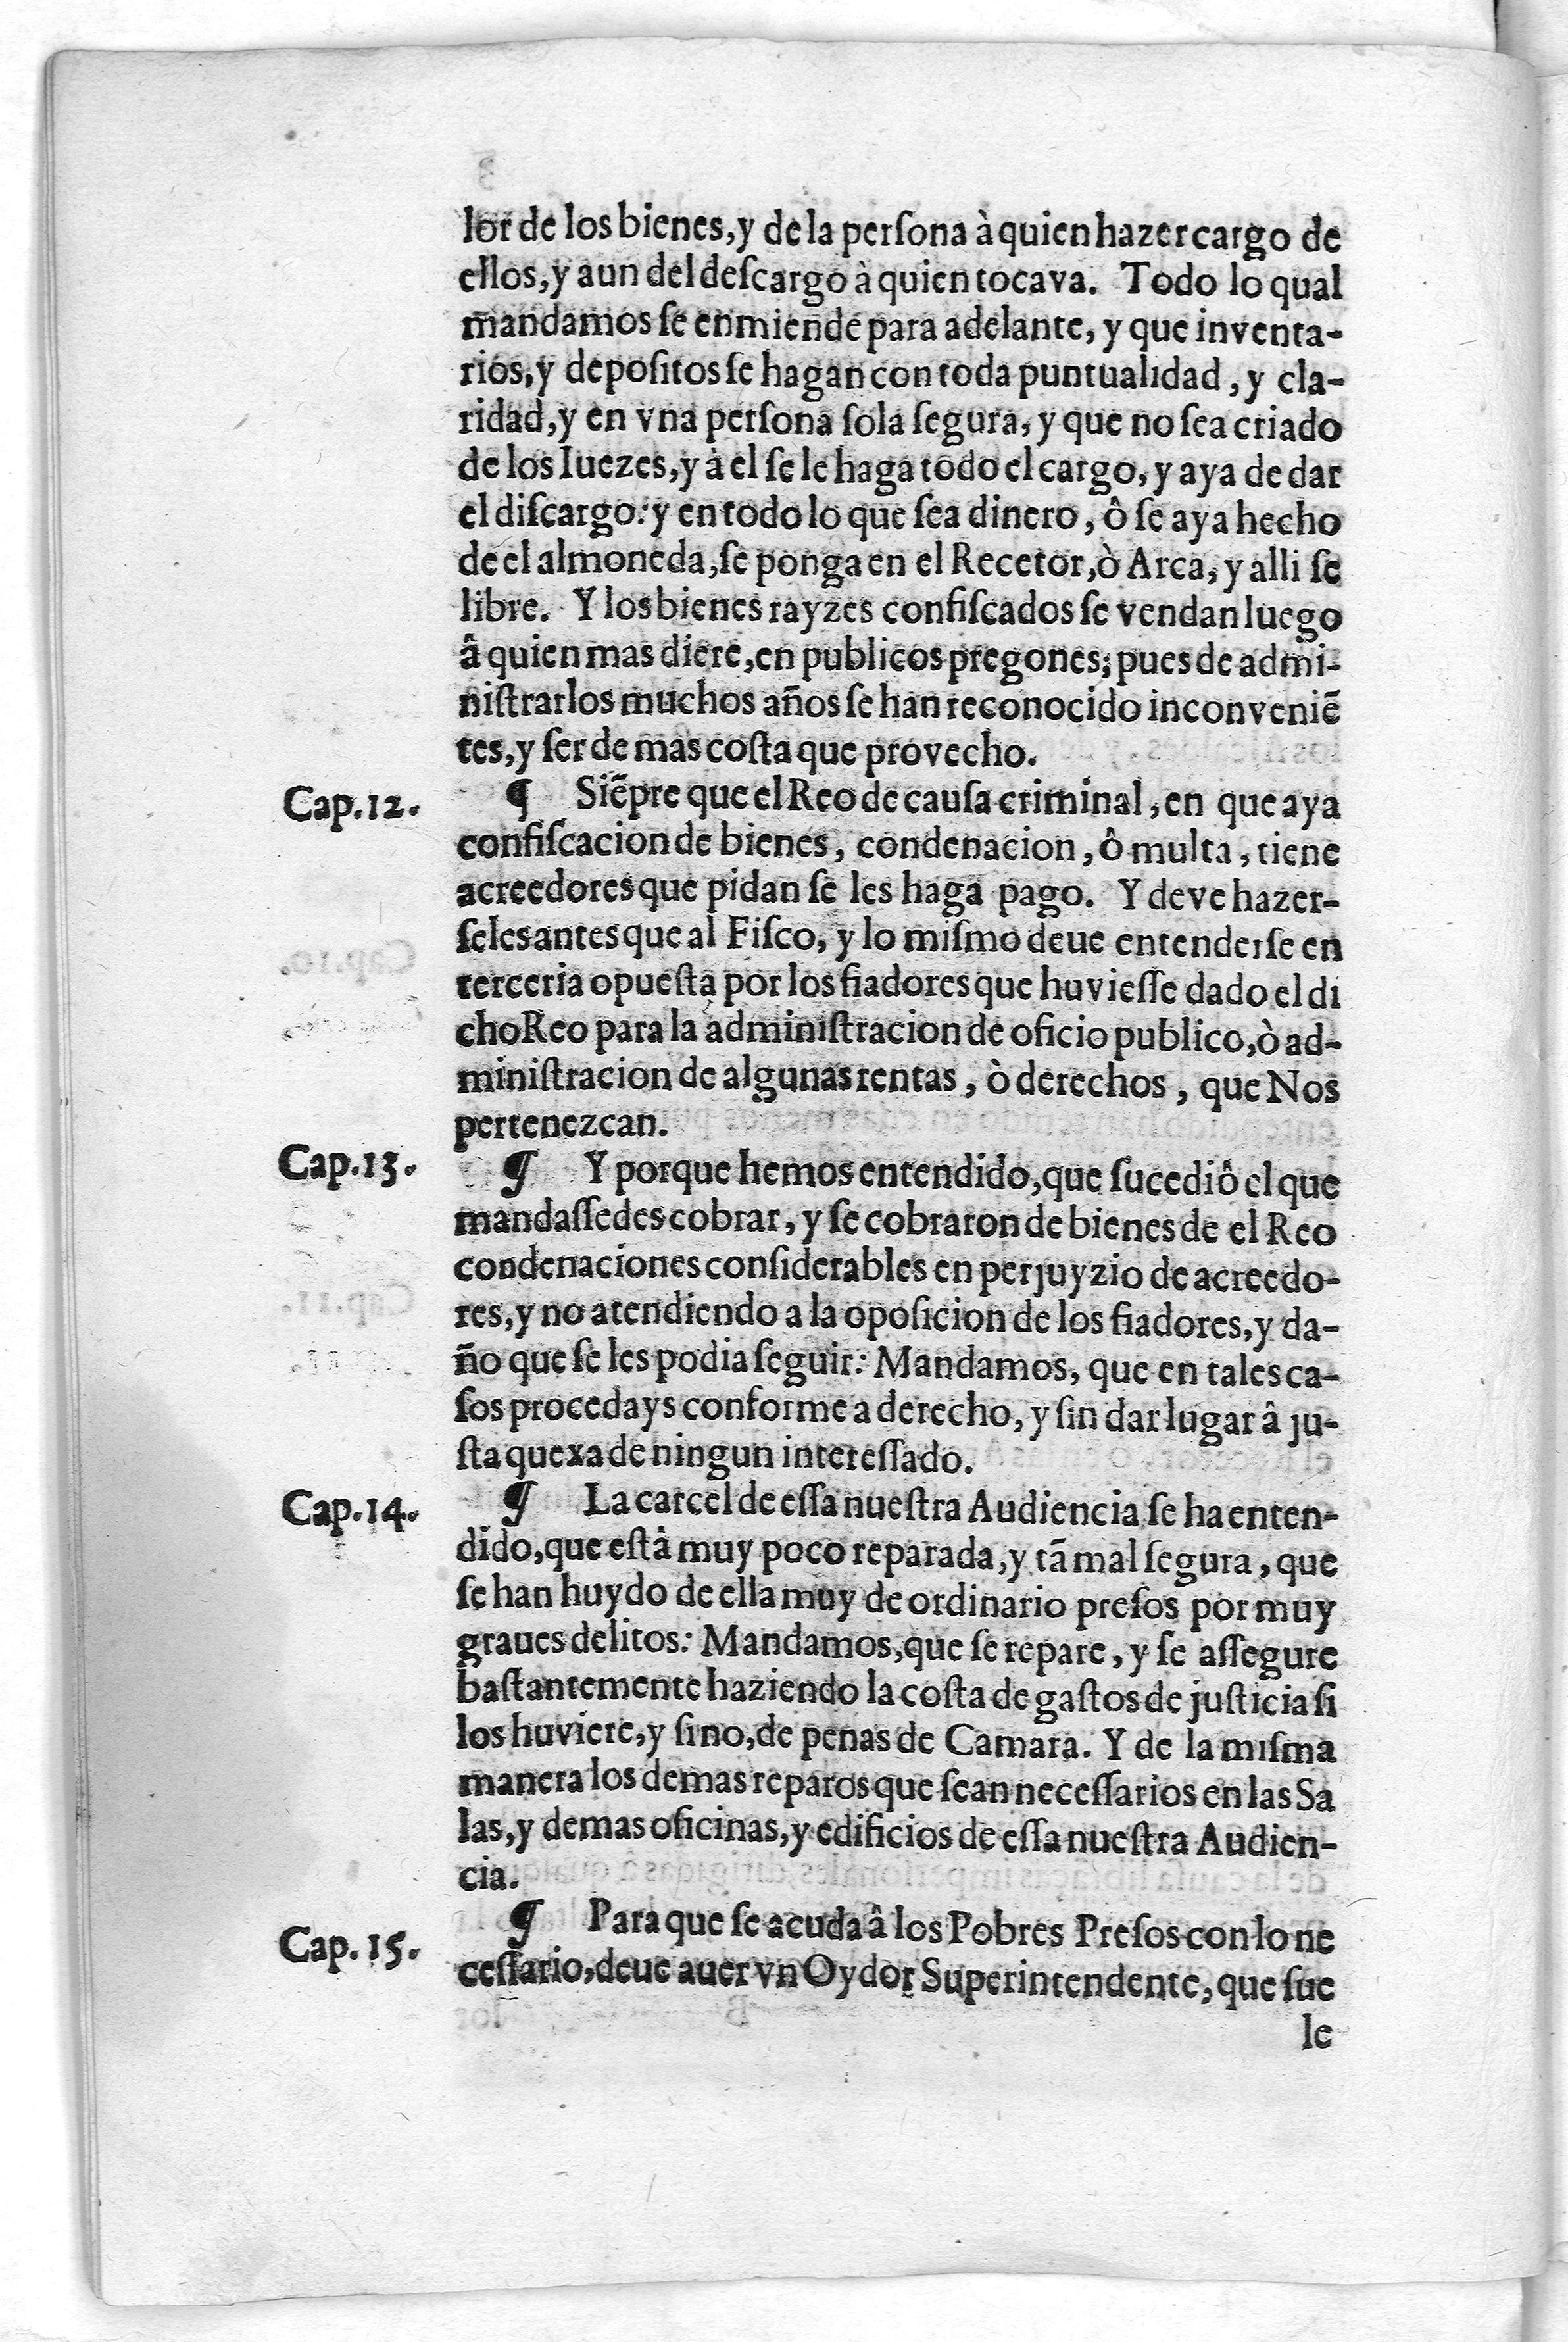 lor de los bienes, y de la perſona à quien hazer cargo de
ellos, y aun del deſcargo à quien tocava. Todo lo qual
mandamos ſe enmiende para adelante, y que inventa-
rios, y depoſitos ſe hagan con toda puntualidad, y cla-
ridad, y en vna perſona ſola ſegura, y que no ſea criado
de los Iuezes, y à el ſe le haga todo el cargo, y aya de dar
el diſcargo: y en todo lo que ſea dinero, ô ſe aya hecho
de el almoneda, ſe ponga en el Recetor, ò Arca, y alli ſe
libre. Y los bienes rayzes confiſcados ſe vendan luego
â quien mas diere, en publicos pregones; pues de admi-
niſtrarlos muchos años ſe han reconocido inconveniẽ
tes, y ſer de mas coſta que provecho.
Cap. 12. ¶ Siẽpre que el Reo de cauſa criminal, en que aya
confiſcacion de bienes, condenacion, ô multa, tiene
acreedores que pidan ſe les haga pago. Y deve hazer-
ſeles antes que al Fiſco, y lo miſmo deue entenderſe en
terceria opueſta por los fiadores que huvieſſe dado el di
cho Reo para la adminiſtracion de oficio publico, ò ad-
miniſtracion de algunas rentas, ò derechos, que Nos
pertenezcan.
Cap. 13. ¶ Y porque hemos entendido, que ſucediô el que
mandaſſedes cobrar, y ſe cobraron de bienes de el Reo
condenaciones conſiderables en perjuyzio de acreedo-
res, y no atendiendo a la opoſicion de los fiadores, y da-
ño que ſe les podia ſeguir: Mandamos, que en tales ca-
ſos procedays conforme a derecho, y ſin dar lugar â ju-
ſta quexa de ningun intereſſado.
Cap. 14. ¶ La carcel de eſſa nueſtra Audiencia ſe ha enten-
dido, que eſtà muy poco reparada, y tã mal ſegura, que
ſe han huydo de ella muy de ordinario preſos por muy
graues delitos: Mandamos, que ſe repare, y ſe aſſegure
baſtantemente haziendo la coſta de gaſtos de juſticia ſi
los huviere, y ſino, de penas de Camara. Y de la miſma
manera los demas reparos que ſean neceſſarios en las Sa
las, y demas oficinas, y edificios de eſſa nueſtra Audien-
cia.
Cap. 15. ¶ Para que ſe acuda â los Pobres Preſos con lo ne
ceſſario, deue auer vn Oydor Superintendente, que ſue
le